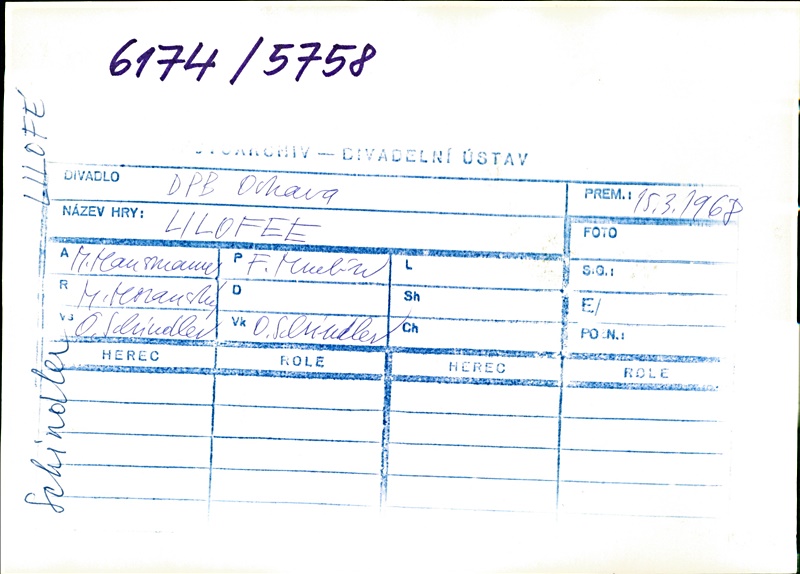 6174/5758
LILOFÉ
FOTOARCHIV — DIVADELNÍ ÚSTAV
DIVADLO DPB Ostrava PREM.: 15.3.1968
NÁZEV HRY: LILOFEE FOTO
A M. Hausmann P F. L S.G.:
R M. D Sh E/
Vs O. Schindler Vk O. Schindler Ch POZN.:
HEREC ROLE HEREC ROLE
Schindler